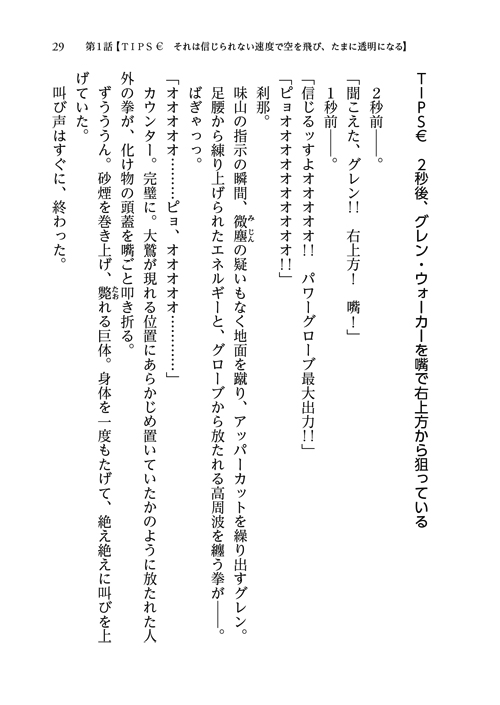 29 第1話【TIPS€ それは信じられない速度で空を飛び、たまに透明になる】
TIPS€ 2秒後、グレン・ウォーカーを嘴で右上方から狙っている
2秒前――。
「聞こえた、グレン!! 右上方! 嘴!」
1秒前――。
「信じるッすよオオオオオ!! パワーグローブ最大出力!!」
「ピョオオオオオオオオオオオ!!」
刹那。
味山の指示の瞬間、微塵の疑いもなく地面を蹴り、アッパーカットを繰り出すグレン。
足腰から練り上げられたエネルギーと、グローブから放たれる高周波を纏う拳が――。
ばぎゃっっ。
「オオオオオ………ピョ、オオオオオ…………」
カウンター。完璧に。大鷲が現れる位置にあらかじめ置いていたかのように放たれた人
外の拳が、化け物の頭蓋を嘴ごと叩き折る。
ずうううん。砂煙を巻き上げ、斃れる巨体。身体を一度もたげて、絶え絶えに叫びを上
げていた。
叫び声はすぐに、終わった。